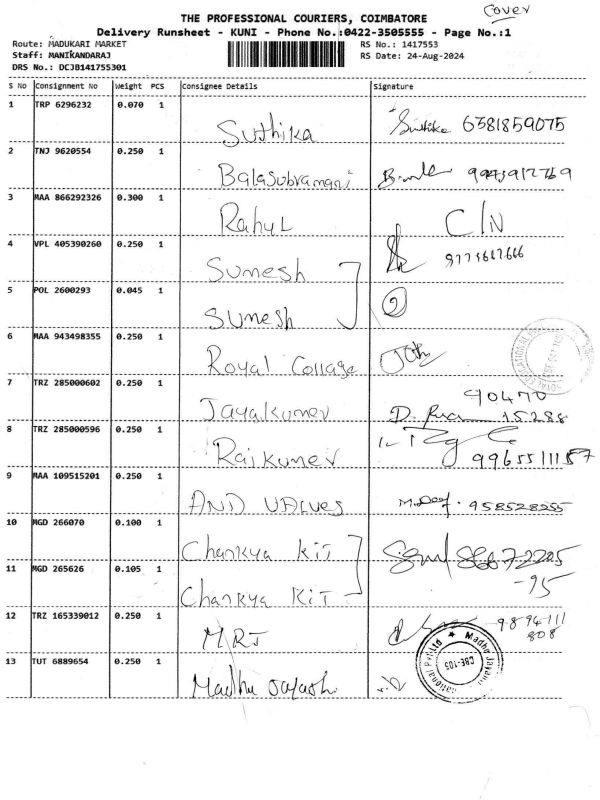 Cover
THE PROFESSIONAL COURIERS, COIMBATORE
Delivery Runsheet - KUNI - Phone No.:0422-3505555 - Page No.:1
Route: MADUKARI MARKET RS No.: 1417553
Staff: MANIKANDARAJ RS Date: 24-Aug-2024
DRS No.: DCJB141755301
S No Consignment No Weight PCS Consignee Details Signature
1 TRP 6296232 0.070 1
Suthika Suthika 6381859075
2 TNJ 9620554 0.250 1
Balasubramani
3 MAA 866292326 0.300 1
Rahul C/N
4 VPL 405390260 0.250 1
Sumesh
5 POL 2600293 0.045 1
Sumesh 2
6 MAA 943498355 0.250 1
Royal Collage
7 TRZ 285000602 0.250 1
90470
Jayakumer 15288
8 TRZ 285000596 0.250 1
Rajkumer
9 MAA 109515201 0.250 1
AND VALVES 958528255
10 MGD 266070 0.100 1
Chankya KIT
11 MGD 265626 0.105 1
-95
Chankya KIT
12 TRZ 165339012 0.250 1
9894111
MRJ 808
13 TUT 6889654 0.250 1
CBE-105
Madhu Jayash